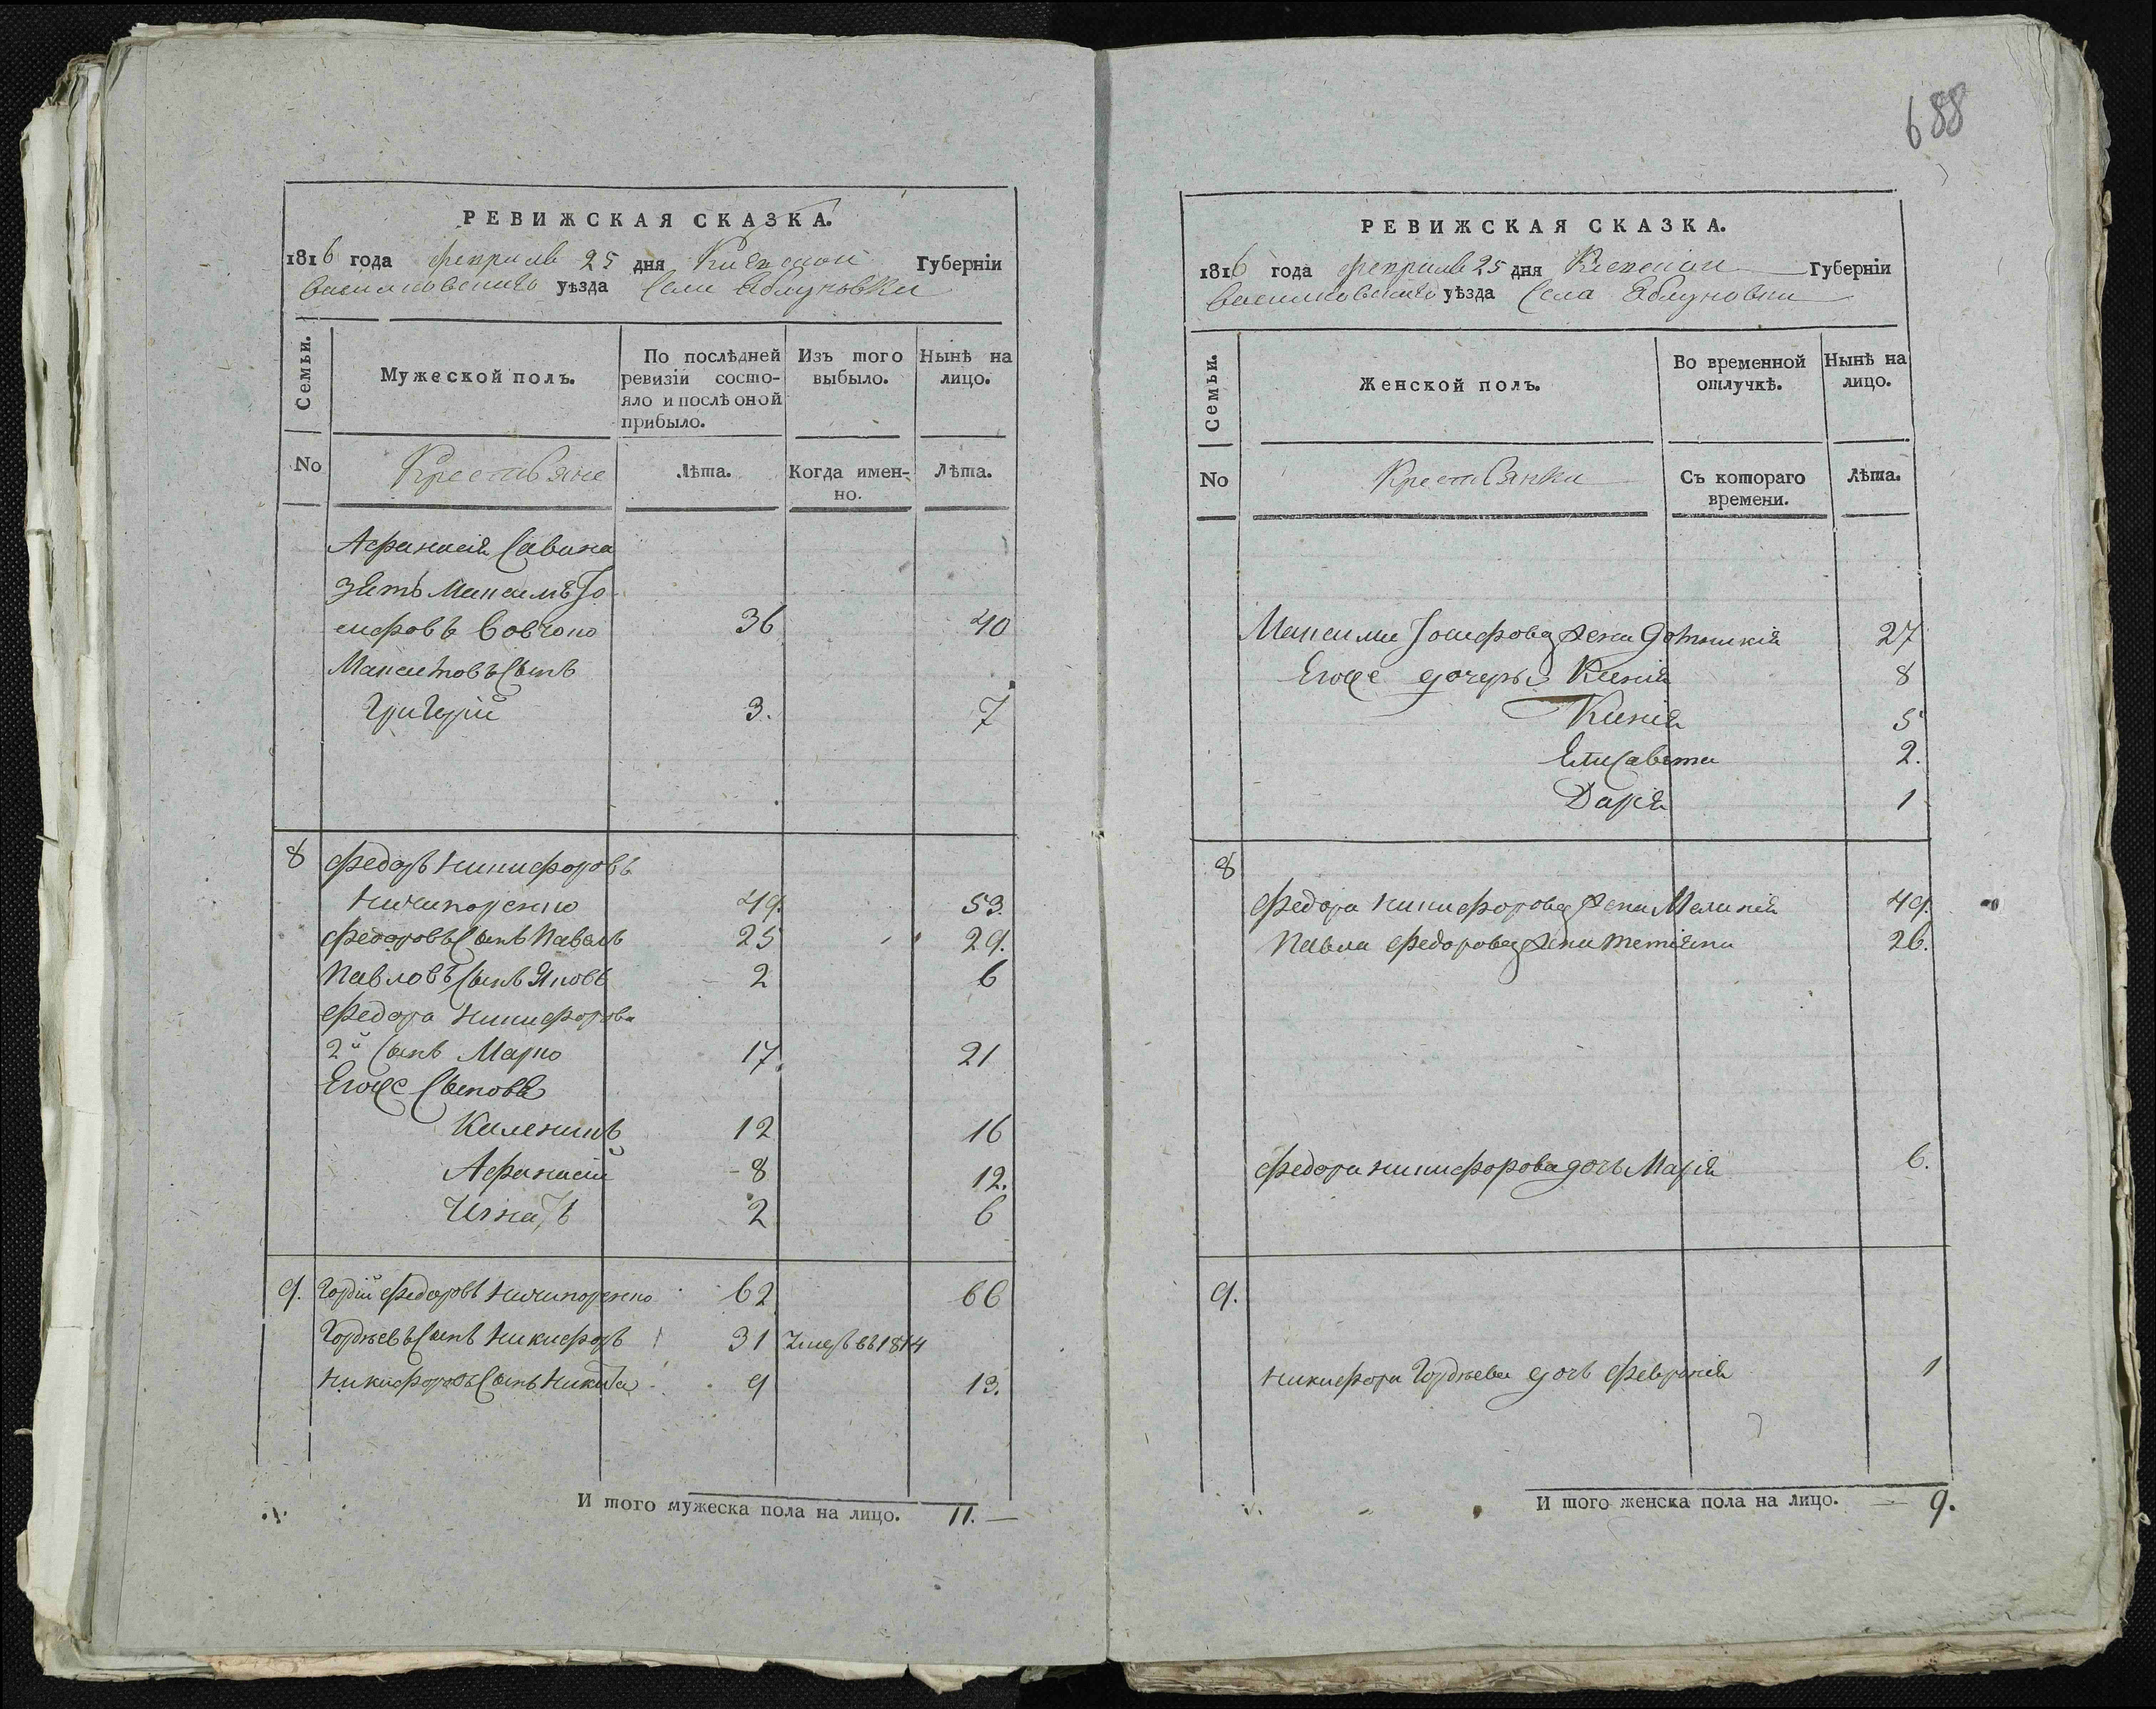 РЕВИЖСКАЯ СКАЗКА.
1816 года февраля 25 дня Киевской Губерніи
Васильковского уѣзда Села Яблуновки
Семьи.
Мужеской полъ.
По послѣдней ревизіи состо-
яло и послѣ оной
прибыло.
Изъ того
выбыло.
Нынѣ на
лицо.
No
Крестьяне
Лѣта.
Когда имен-
но.
Лѣта.
Афанасія Савина
зять Максимъ Іо
сифовъ Вовчоко 36 40
Максимовъ Сынъ
Григорій 3. 7
8 Федоръ Никифоровъ
Ничипоренко 49. 53.
Федоровъ Сынъ Павелъ 25 29.
Павловъ Сынъ Яковъ 2 6
Федора Никифорова
2й Сынъ Марко 17. 21
Егоже Сыновя
Каленикъ 12 16
Афанасій 8 12.
Игнатъ 2 6
9. Гордій Федоровъ Ничипоренко 62 66
Гордѣевъ Сынъ Никифоръ 31 Умеръ въ 1814
Никифоровъ Сынъ Никита 9 13.
И того мужеска пола на лицо. 11.
688
РЕВИЖСКАЯ СКАЗКА.
1816 года февраля 25 дня Киевской Губерніи
Васильковского уѣзда Села Яблуновки
Семьи.
Женской полъ.
Во временной
отлучкѣ.
Нынѣ на
лицо.
No
Крестьянки
Съ котораго
времени.
Лѣта.
Максима Іосифова жена 27
Егоже дочеры Ксенія 8
Ксенія 5
Елисавета 2.
Дарія 1
8
Федора Никифорова жена Меланія 49.
Павла Федорова жена Тетіяна 26.
Федора Никифорова дочь Марія 6.
9.
Никифора Гордѣева дочь Февронія 1
И того женска пола на лицо. 9.